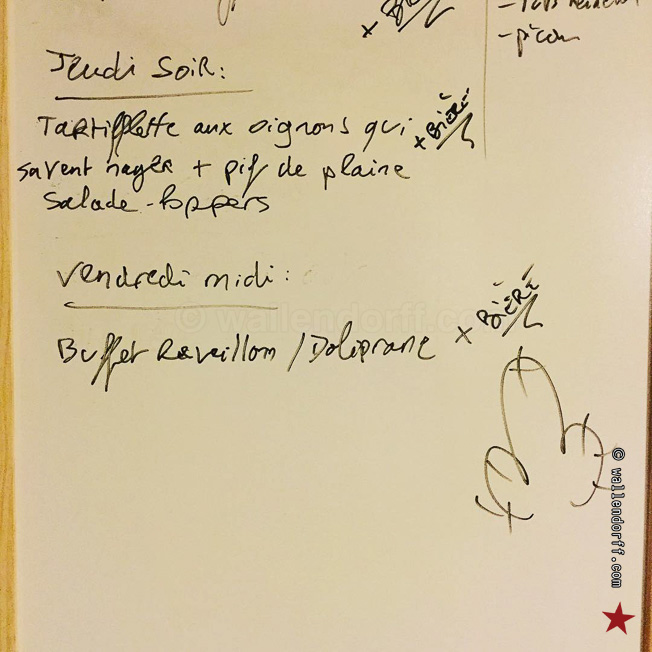 + Bière
- picon
Jeudi soir :
Tartifflette aux oignons qui + Bière
savent nager + pif de plaine
Salade - Poppers
Vendredi midi :
Buffet Reveillon / Doliprane + Bière
© wallendorff.com
© wallendorff.com